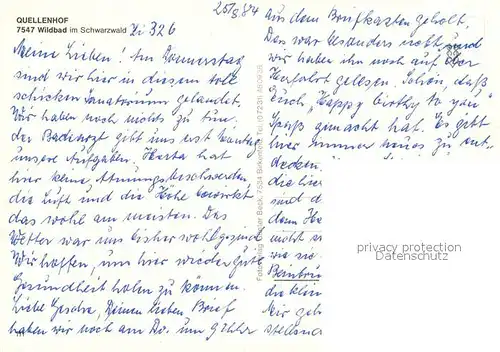 QUELLENHOF
7547 Wildbad im Schwarzwald
Zi 326
25/8.84
Meine Lieben! Am Donnerstag
sind wir hier in diesem toll
schicken Sanatorium gelandet.
Wir haben noch nichts zu tun.
der Badearzt gibt uns erst Montag
unsere Aufgaben. Herta hat
hier keine Atmungsbeschwerden
die Luft und die Höhe bewirkt
das wohl am meisten. Das
Wetter war uns bisher wohlgesinnt
Wir hoffen, uns hier wieder gute
Gesundheit holen zu können.
Liebe Gesche, Deinen lieben Brief
haben wir noch am Do. um 6 Uhr
aus dem Briefkasten geholt.
Das war besonders nett und
wir haben ihn noch auf der
Herfahrt gelesen. Schön, daß
Euch "Happy birthy to you"
Spaß gemacht hat. Es gibt
hier immer neues zu ent-
decken.
die lie
sind d
dem He
nicht
wie sie
die klein
Mir geh
stellsna
Fotoverlag Günter Beck, 7534 Birkenfeld
privacy protection